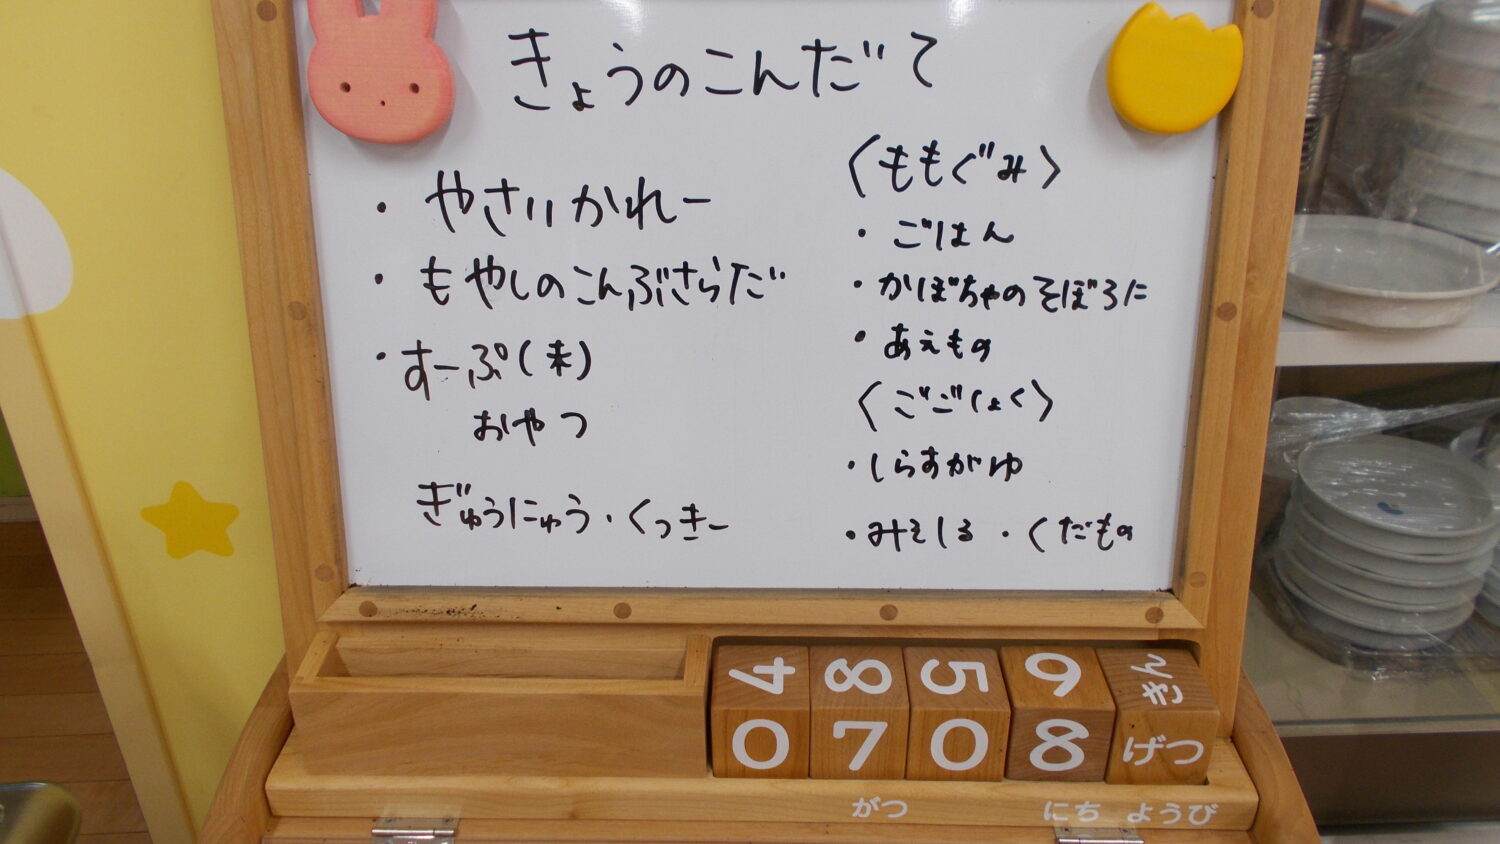 きょうのこんだて
・やさいかれー
・もやしのこんぶさらだ
・すーぷ(末)
おやつ
ぎゅうにゅう・くっきー
〈ももぐみ〉
・ごはん
・かぼちゃのそぼろに
・あえもの
〈ごごしょく〉
・しらすがゆ
・みそしる・くだもの
4 8 5 9 きん
0 7 0 8 げつ
がつ にち ようび